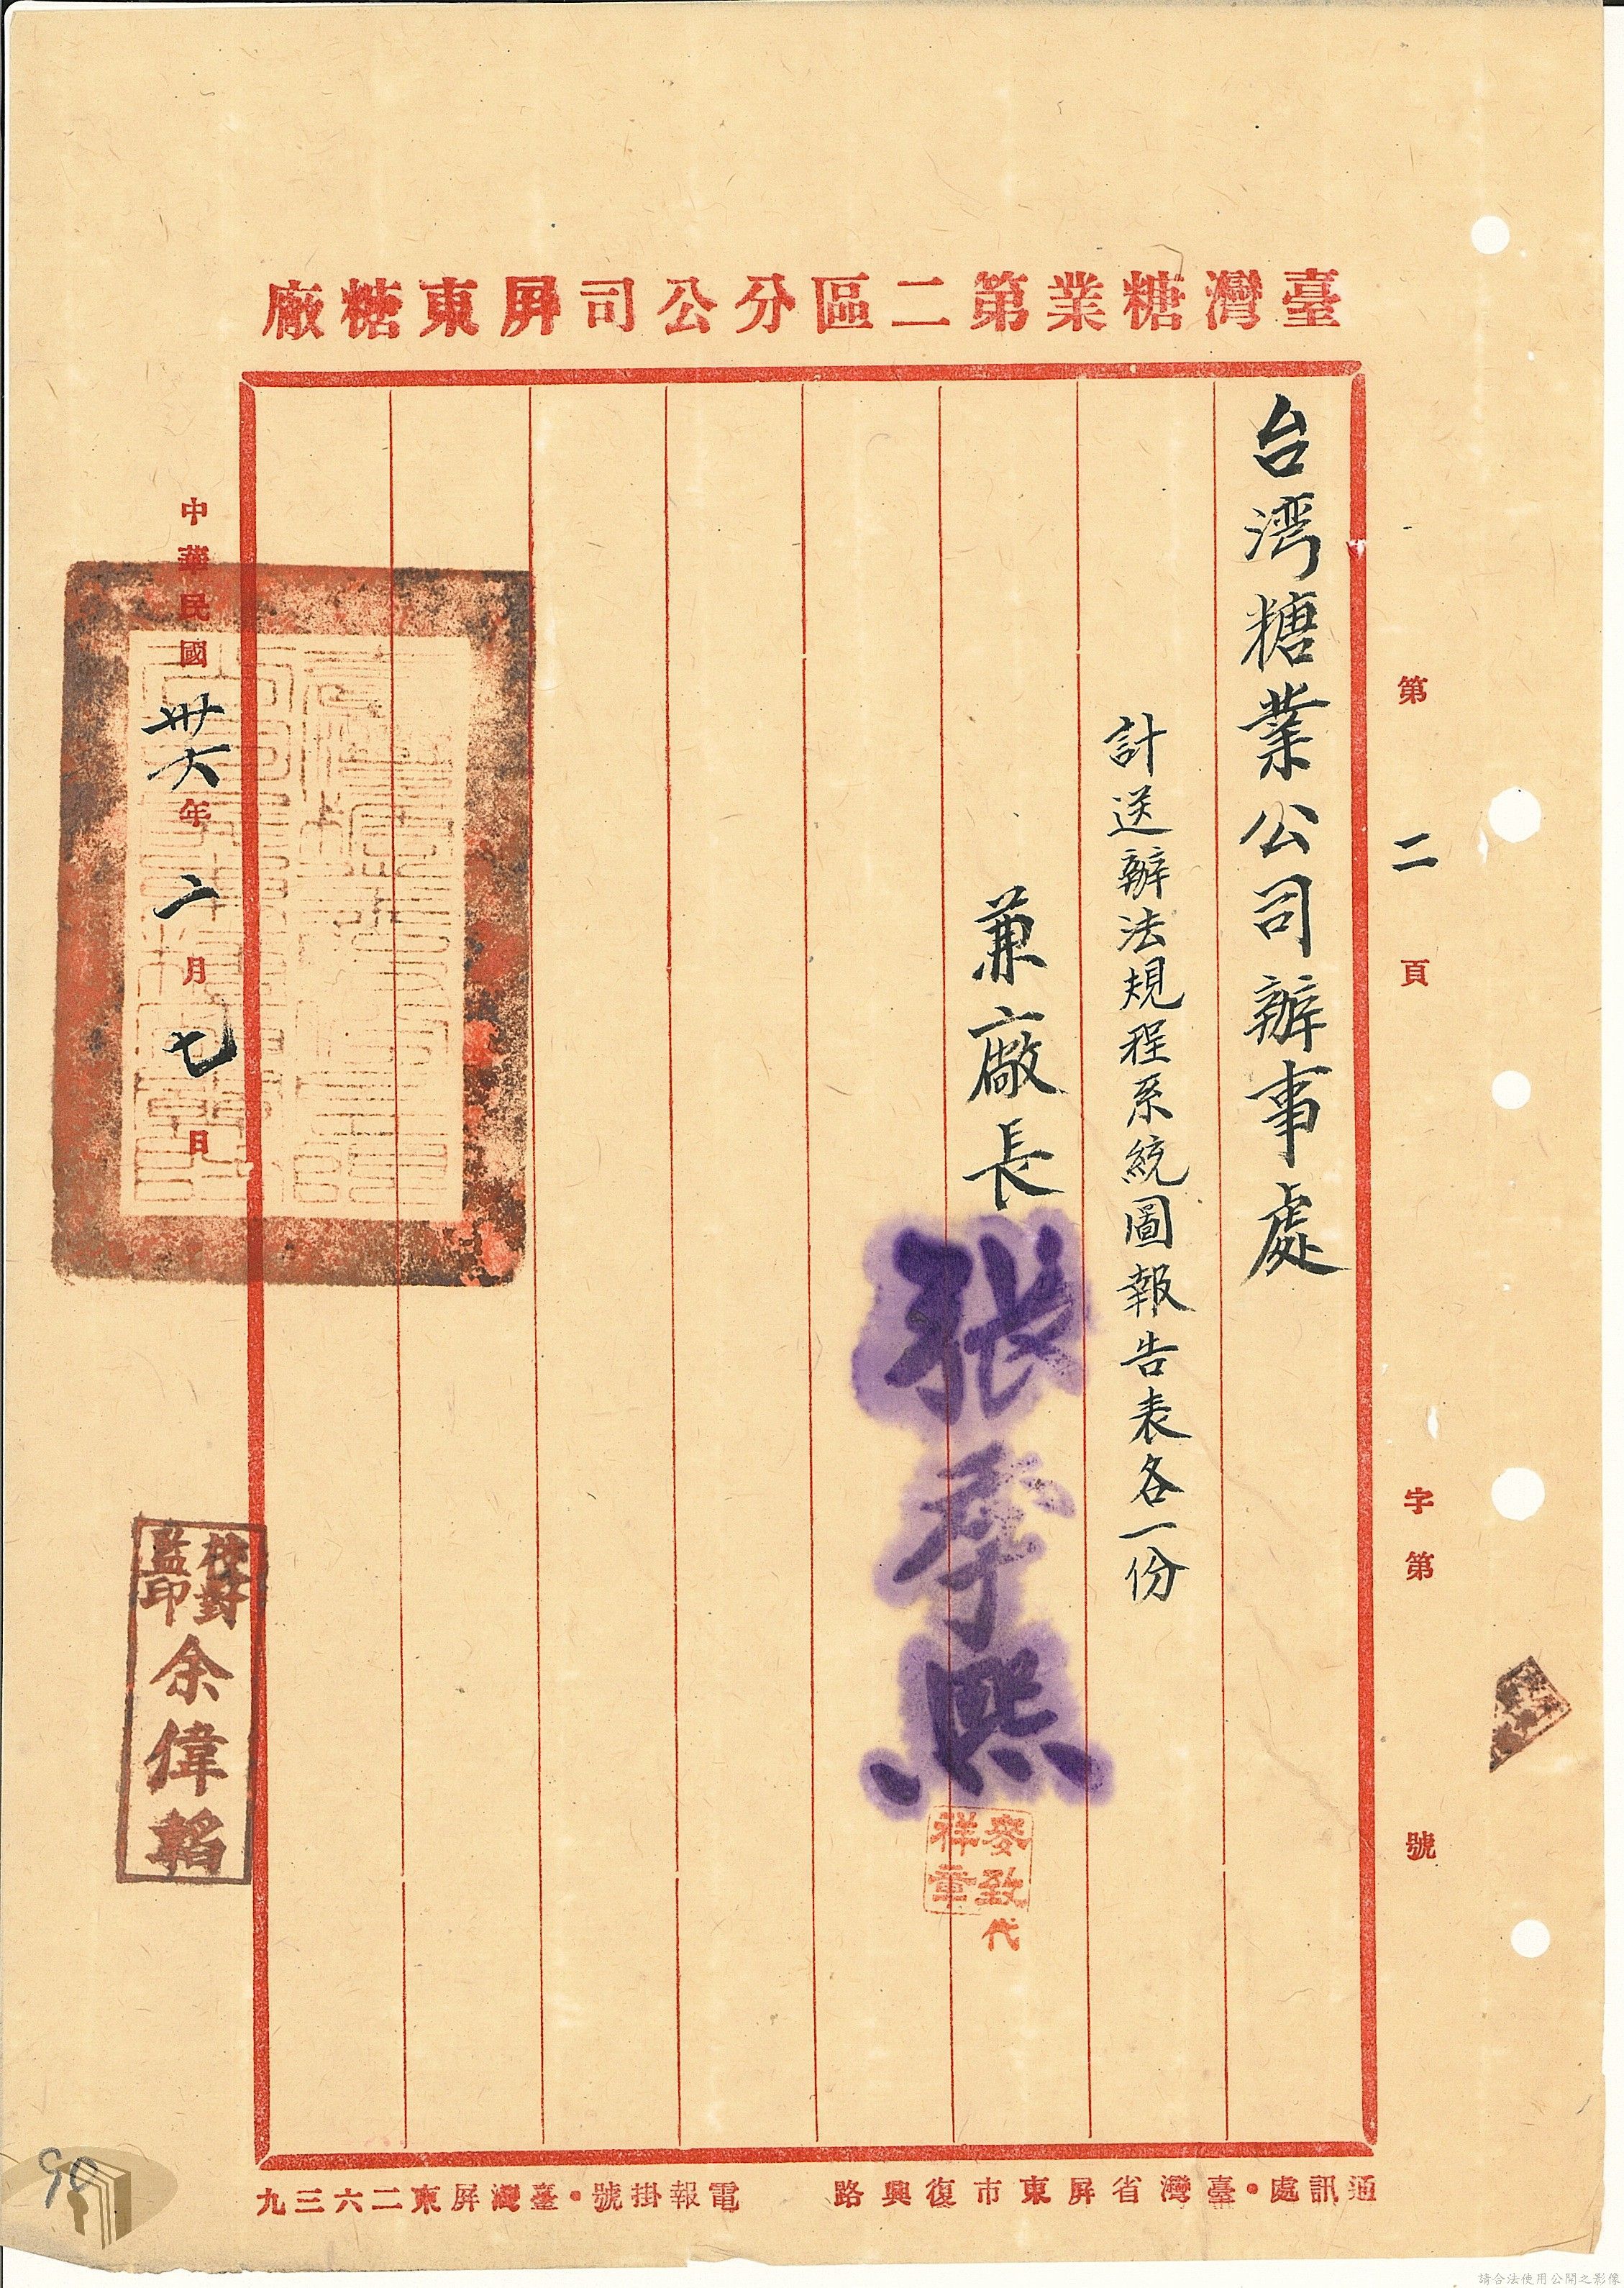 臺灣糖業第二區分公司屏東糖廠
第二頁 字第 號
台湾糖業公司辦事處
計送辦法規程系統圖報告表各一份
兼廠長 張季熙
麥致祥章 代
中華民國卅六年二月七日
校對
監印
余偉韜
通訊處・臺灣省屏東市復興路 電報掛號・臺灣屏東二六三九
90
請合法使用公開之影像